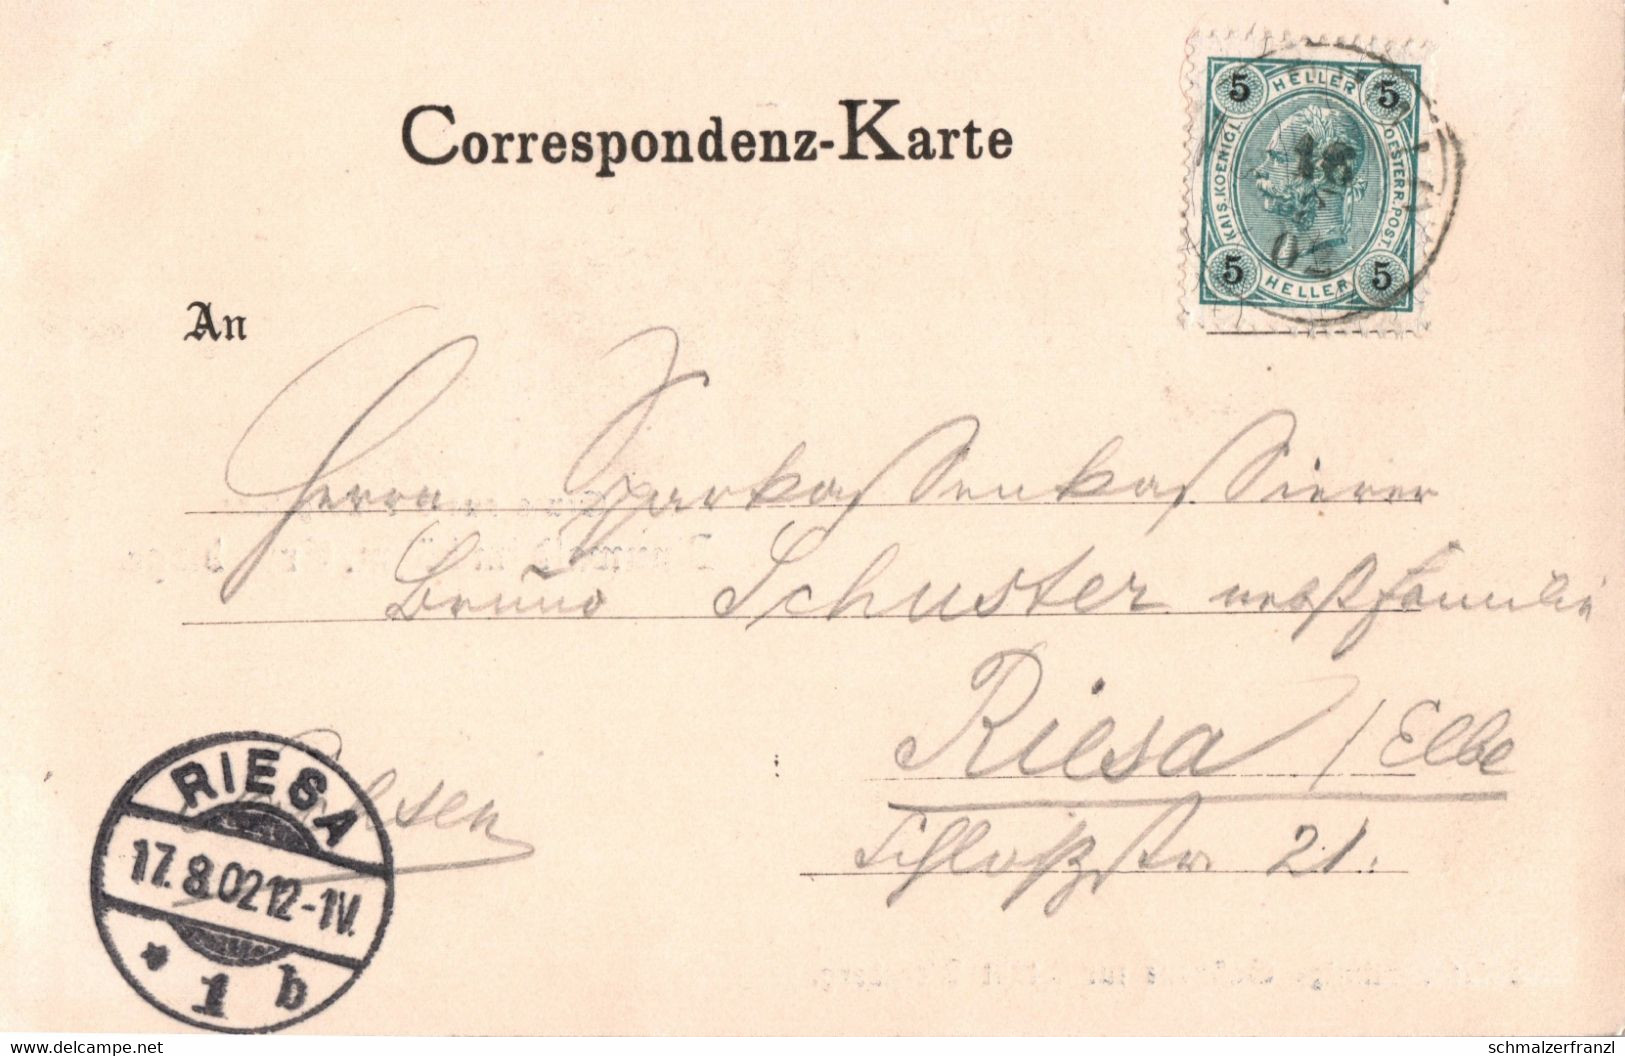 Correspondenz-Karte
5 HELLER 5
KAIS. KOENIGL.
OESTERR. POST.
5 HELLER 5
16
02
An
Herrn Sparkassenkassierer
Bruno Schuster nebst Familie
Riesa / Elbe
Sachsen
Schloßstr. 21.
RIESA
17.8.02 12-1V.
* 1 b
www.delcampe.net
schmalzerfranzl